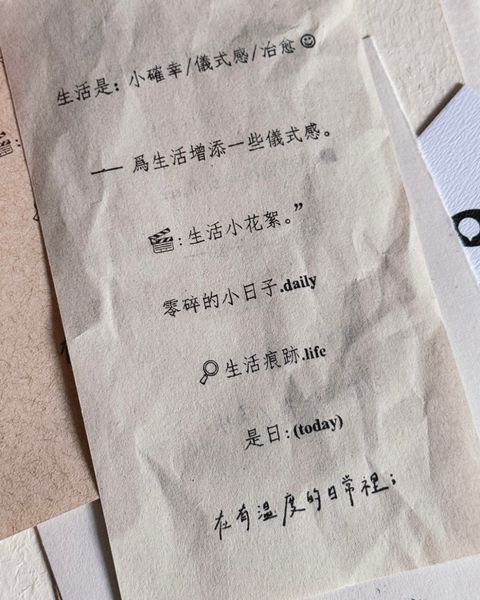 生活是：小確幸/儀式感/冶愈☺
—— 爲生活增添一些儀式感。
🎬:生活小花絮。”
零碎的小日子.daily
🔍生活痕跡.life
是日:(today)
在有溫度的日常裡；